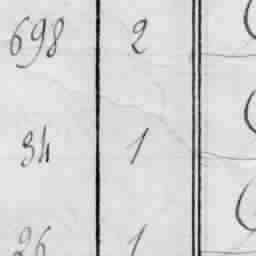 698 2
34 1
26 1